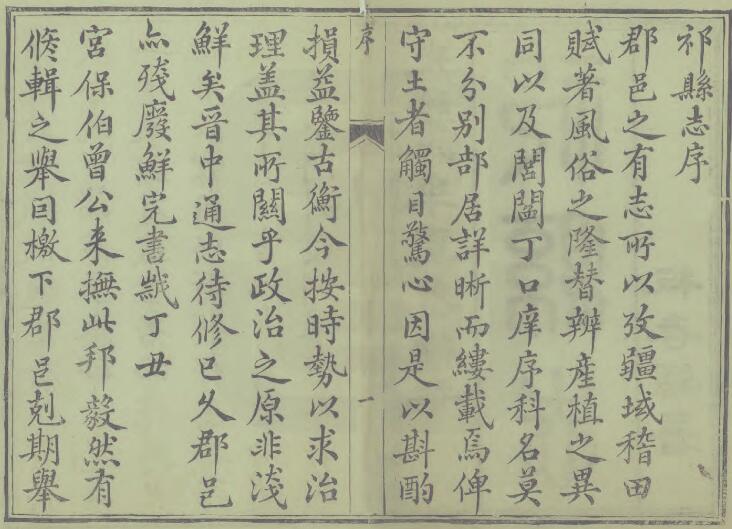 祁縣志序
郡邑之有志所以攷疆域稽田
賦著風俗之隆替辨產植之異
同以及閭閻丁口庠序科名莫
不分别部居詳晰而縷載焉俾
守土者觸目驚心因是以斟酌
序
一
損益鑒古衡今按時勢以求治
理盖其所關乎政治之原非淺
鮮矣晉中通志待修已久郡邑
亦殘廢鮮完書歲丁丑
宮保伯曾公来撫此邦毅然有
修輯之舉囙檄下郡邑剋期舉